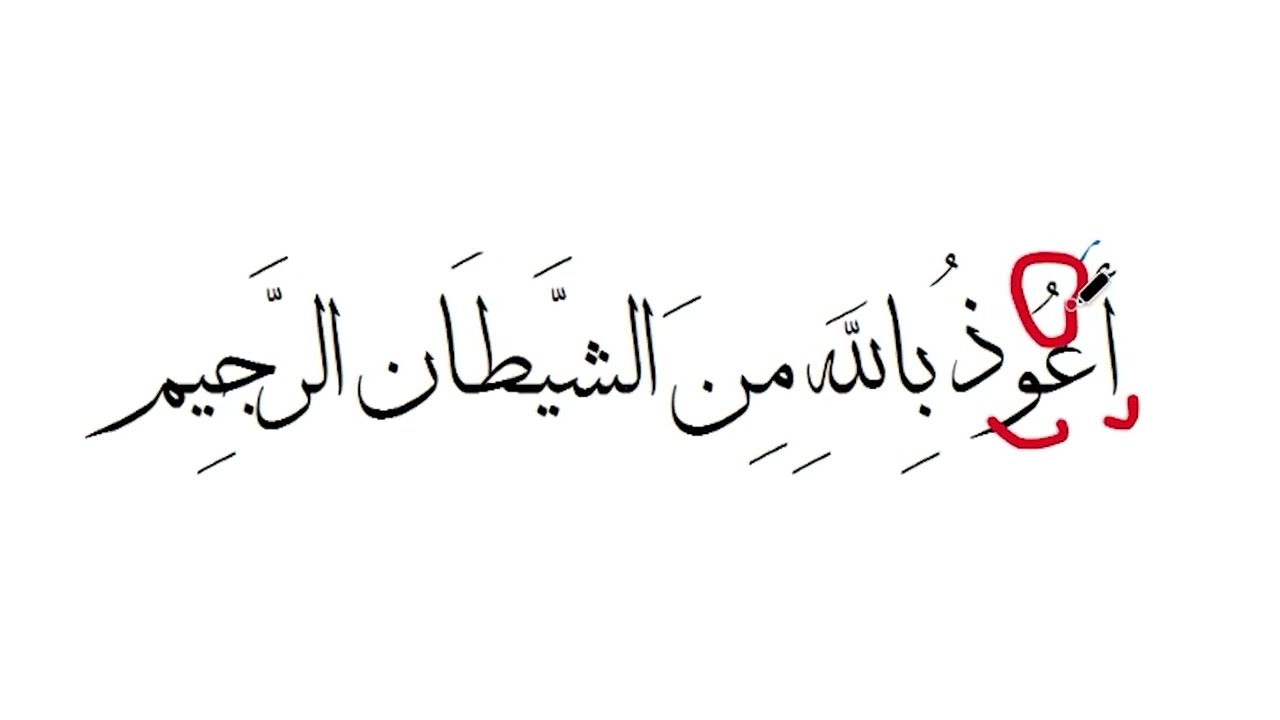 أَعُوذُ بِاللَّهِ مِنَ الشَّيطَان الرَّجِيم